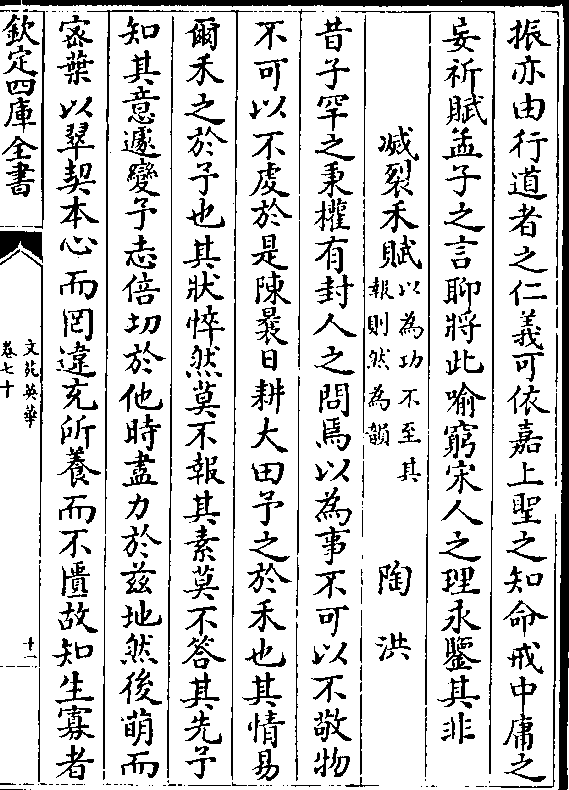 振亦由行道者之仁義可依嘉上聖之知命戒中庸之
妄祈賦孟子之言聊將此喻窮宋人之理永鑒其非
滅裂禾賦 以為功不至其報則然為韻 陶洪
昔子罕之秉權有封人之問焉以為事不可以不敬物
不可以不虔於是陳曩日耕大田予之於禾也其情易
爾禾之於予也其狀悴然莫不報其素莫不答其先予
知其意遽變予志倍切於他時盡力於兹地然後萌而
宻葉以翠契本心而罔違充所養而不匱故知生寡者
欽定四庫全書
文苑英華
卷七十
十一